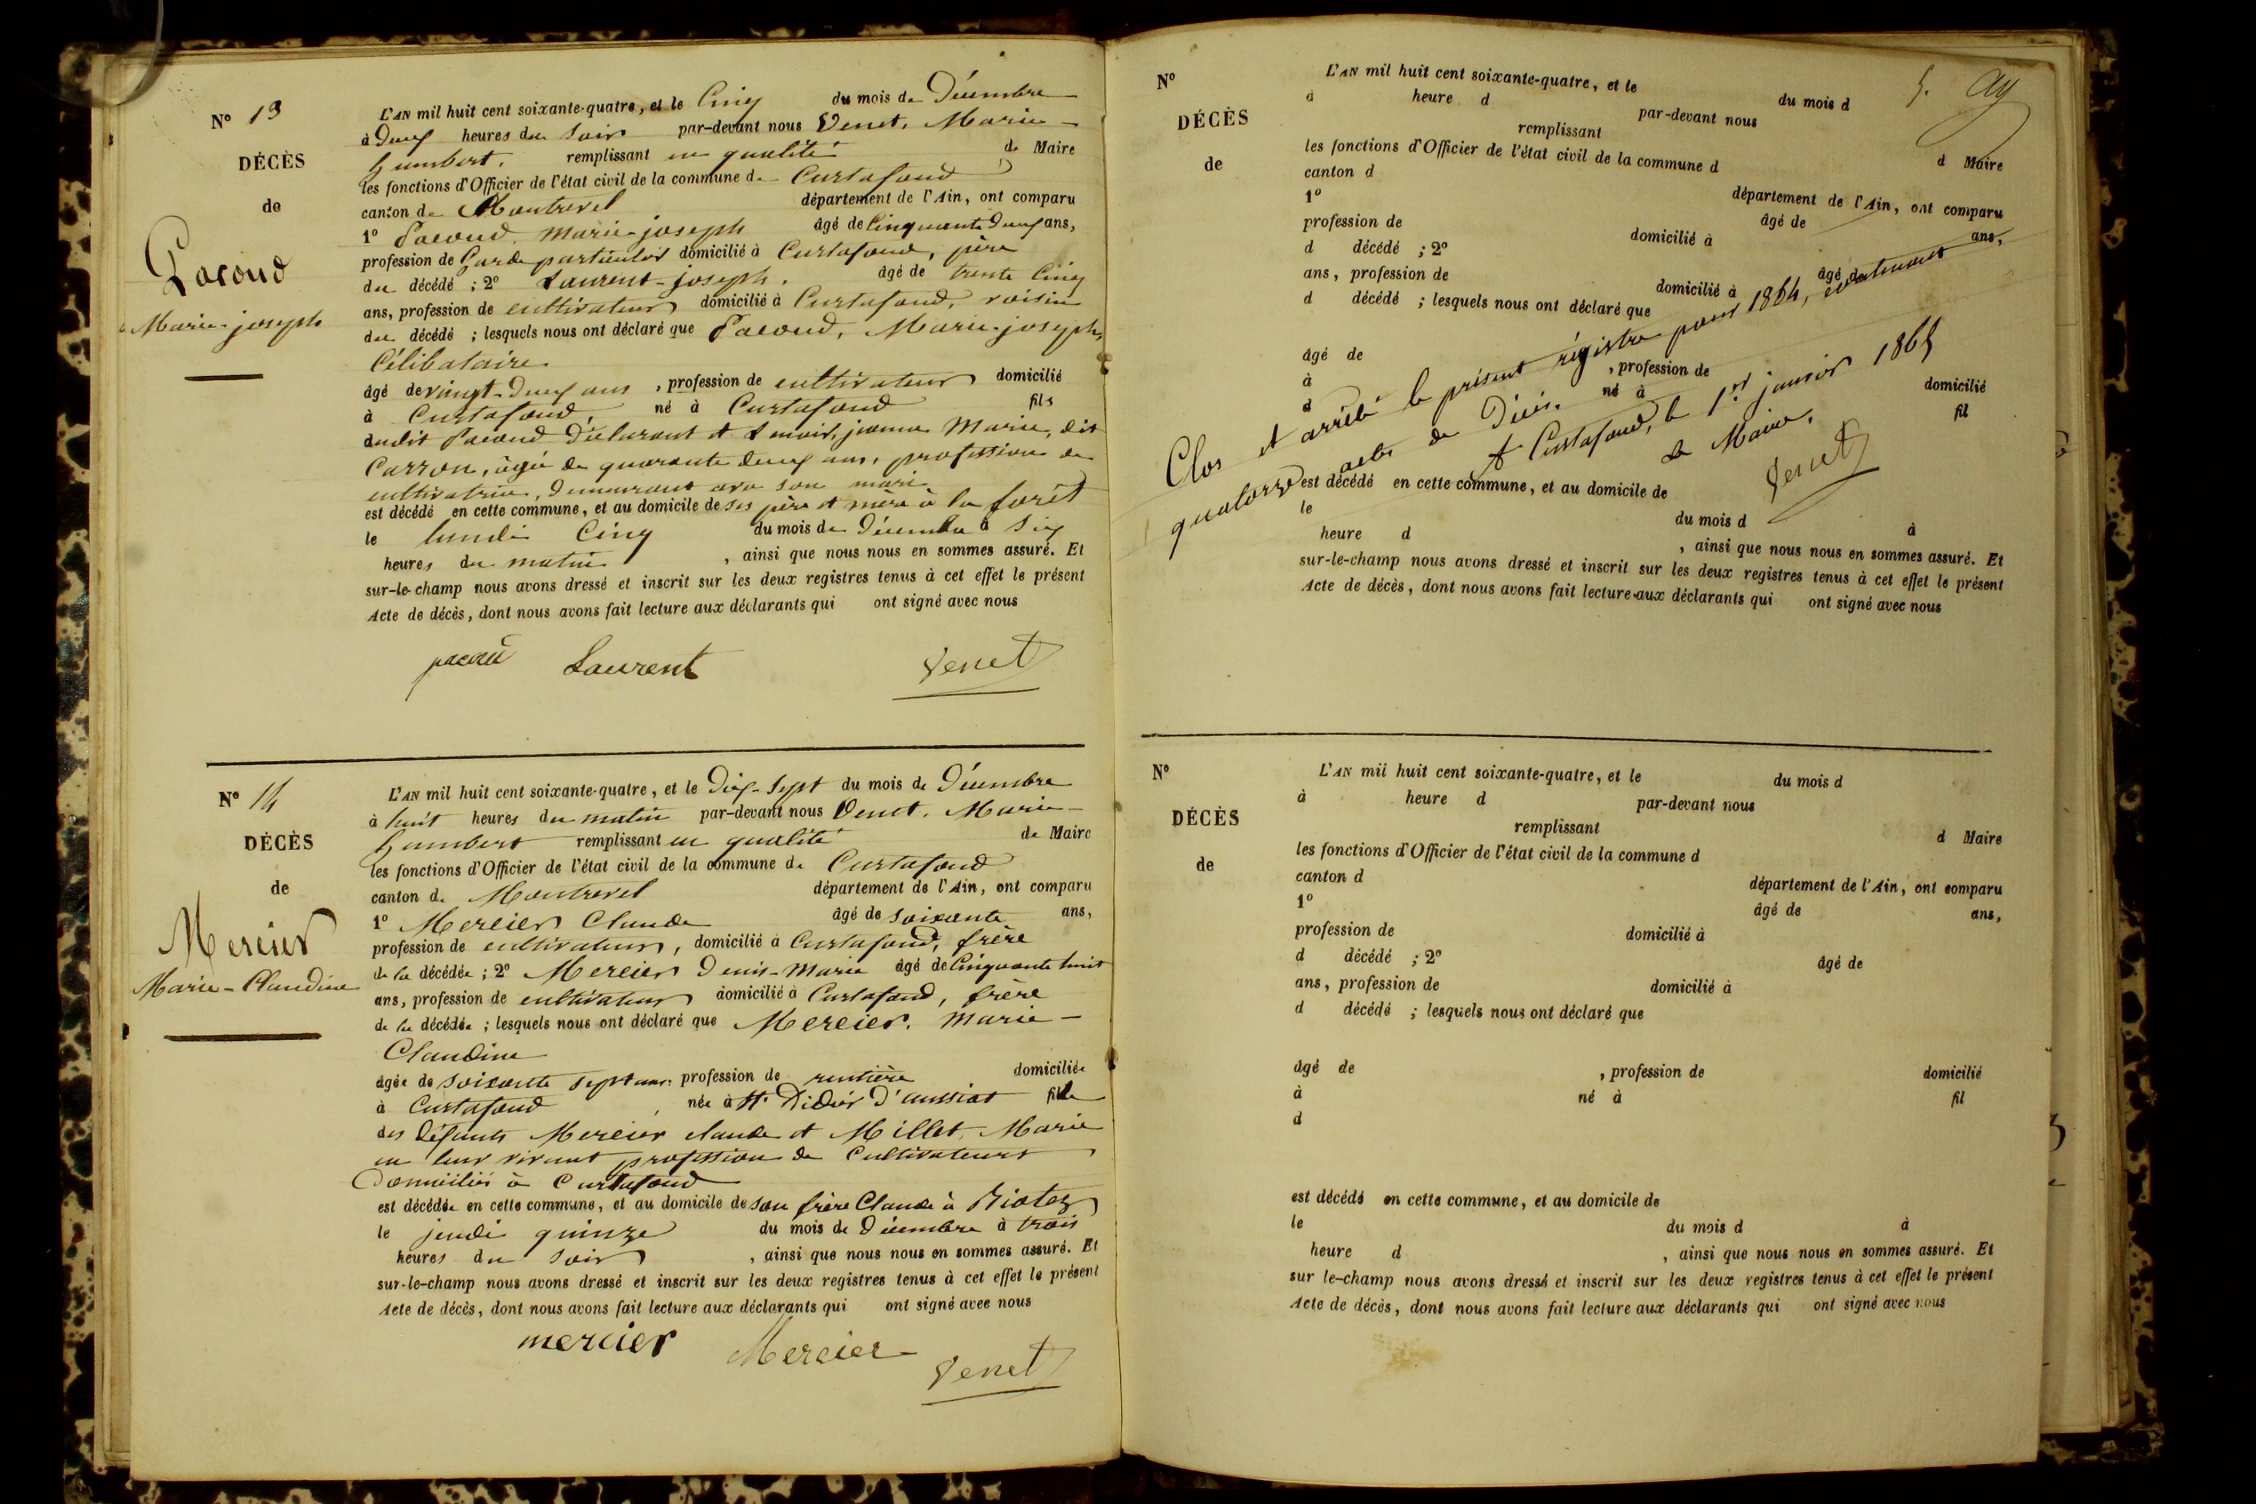 N° 13
DÉCÈS
de
Pacoud
Marie-joseph
L'AN mil huit cent soixante-quatre, et le Cinq du mois de Décembre
à Deux heures du soir par-devant nous Venet, Marie-
humbert, remplissant en qualité de Maire
les fonctions d'Officier de l'état civil de la commune de Curtafond
canton de Montrevel département de l'Ain, ont comparu
1° Pacoud Marie-joseph âgé de Cinquante Deux ans,
profession de Garde particulier domicilié à Curtafond, père
du décédé ; 2° Laurent-joseph, âgé de trente Cinq
ans, profession de cultivateur domicilié à Curtafond, voisin
du décédé ; lesquels nous ont déclaré que Pacoud, Marie-joseph,
Célibataire
âgé de vingt-Deux ans, profession de cultivateur domicilié
à Curtafond, né à Curtafond fils
dudit Pacoud Déclarant et jeanne Marie, dit
Carron, âgée de quarante deux ans, profession de
cultivatrice, Demeurant avec son mari
est décédé en cette commune, et au domicile de ses père et mère à la forêt
le lundi Cinq du mois de Décembre à Six
heures du matin, ainsi que nous nous en sommes assuré. Et
sur-le-champ nous avons dressé et inscrit sur les deux registres tenus à cet effet le présent
Acte de décès, dont nous avons fait lecture aux déclarants qui ont signé avec nous
pacou Laurent Venet
N° 14
DÉCÈS
de
Mercier
Marie-Claudine
L'AN mil huit cent soixante-quatre, et le Dix-Sept du mois de Décembre
à huit heures du matin par-devant nous Venet, Marie-
humbert remplissant en qualité de Maire
les fonctions d'Officier de l'état civil de la commune de Curtafond
canton de Montrevel département de l'Ain, ont comparu
1° Mercier Claude âgé de soixante ans,
profession de cultivateur, domicilié à Curtafond, frère
de la décédée ; 2° Mercier Denis-Marie âgé de Cinquante huit
ans, profession de cultivateur domicilié à Curtafond, frère
de la décédée ; lesquels nous ont déclaré que Mercier, Marie-
Claudine
âgée de soixante sept ans, profession de rentière domiciliée
à Curtafond, née à St Didier D'aussiat fille
des Défunts Mercier claude et Millet, Marie
en leur vivant profession de Cultivateurs
Domiciliés à Curtafond
est décédée en cette commune, et au domicile de son frère Claude à Biotez
le jeudi quinze du mois de Décembre à trois
heures du soir, ainsi que nous nous en sommes assuré. Et
sur-le-champ nous avons dressé et inscrit sur les deux registres tenus à cet effet le présent
Acte de décès, dont nous avons fait lecture aux déclarants qui ont signé avec nous
mercier Mercier Venet
N°
DÉCÈS
de
L'AN mil huit cent soixante-quatre, et le du mois d
à heure d par-devant nous
remplissant d Maire
les fonctions d'Officier de l'état civil de la commune d
canton d département de l'Ain, ont comparu
1° âgé de ans,
profession de domicilié à
d décédé ; 2° âgé de
ans, profession de domicilié à
d décédé ; lesquels nous ont déclaré que
âgé de , profession de domicilié
à né à fil
d
Clos et arrêté le présent régistre pour 1864, contenant
quatorze actes de Décès.
A Curtafond, le 1er janvier 1865
Le Maire,
Venet
est décédé en cette commune, et au domicile de
le du mois d à
heure d , ainsi que nous nous en sommes assuré. Et
sur-le-champ nous avons dressé et inscrit sur les deux registres tenus à cet effet le présent
Acte de décès, dont nous avons fait lecture aux déclarants qui ont signé avec nous
N°
DÉCÈS
de
L'AN mil huit cent soixante-quatre, et le du mois d
à heure d par-devant nous
remplissant d Maire
les fonctions d'Officier de l'état civil de la commune d
canton d département de l'Ain, ont comparu
1° âgé de ans,
profession de domicilié à
d décédé ; 2° âgé de
ans, profession de domicilié à
d décédé ; lesquels nous ont déclaré que
âgé de , profession de domicilié
à né à fil
d
est décédé en cette commune, et au domicile de
le du mois d à
heure d , ainsi que nous nous en sommes assuré. Et
sur le-champ nous avons dressé et inscrit sur les deux registres tenus à cet effet le présent
Acte de décès, dont nous avons fait lecture aux déclarants qui ont signé avec nous